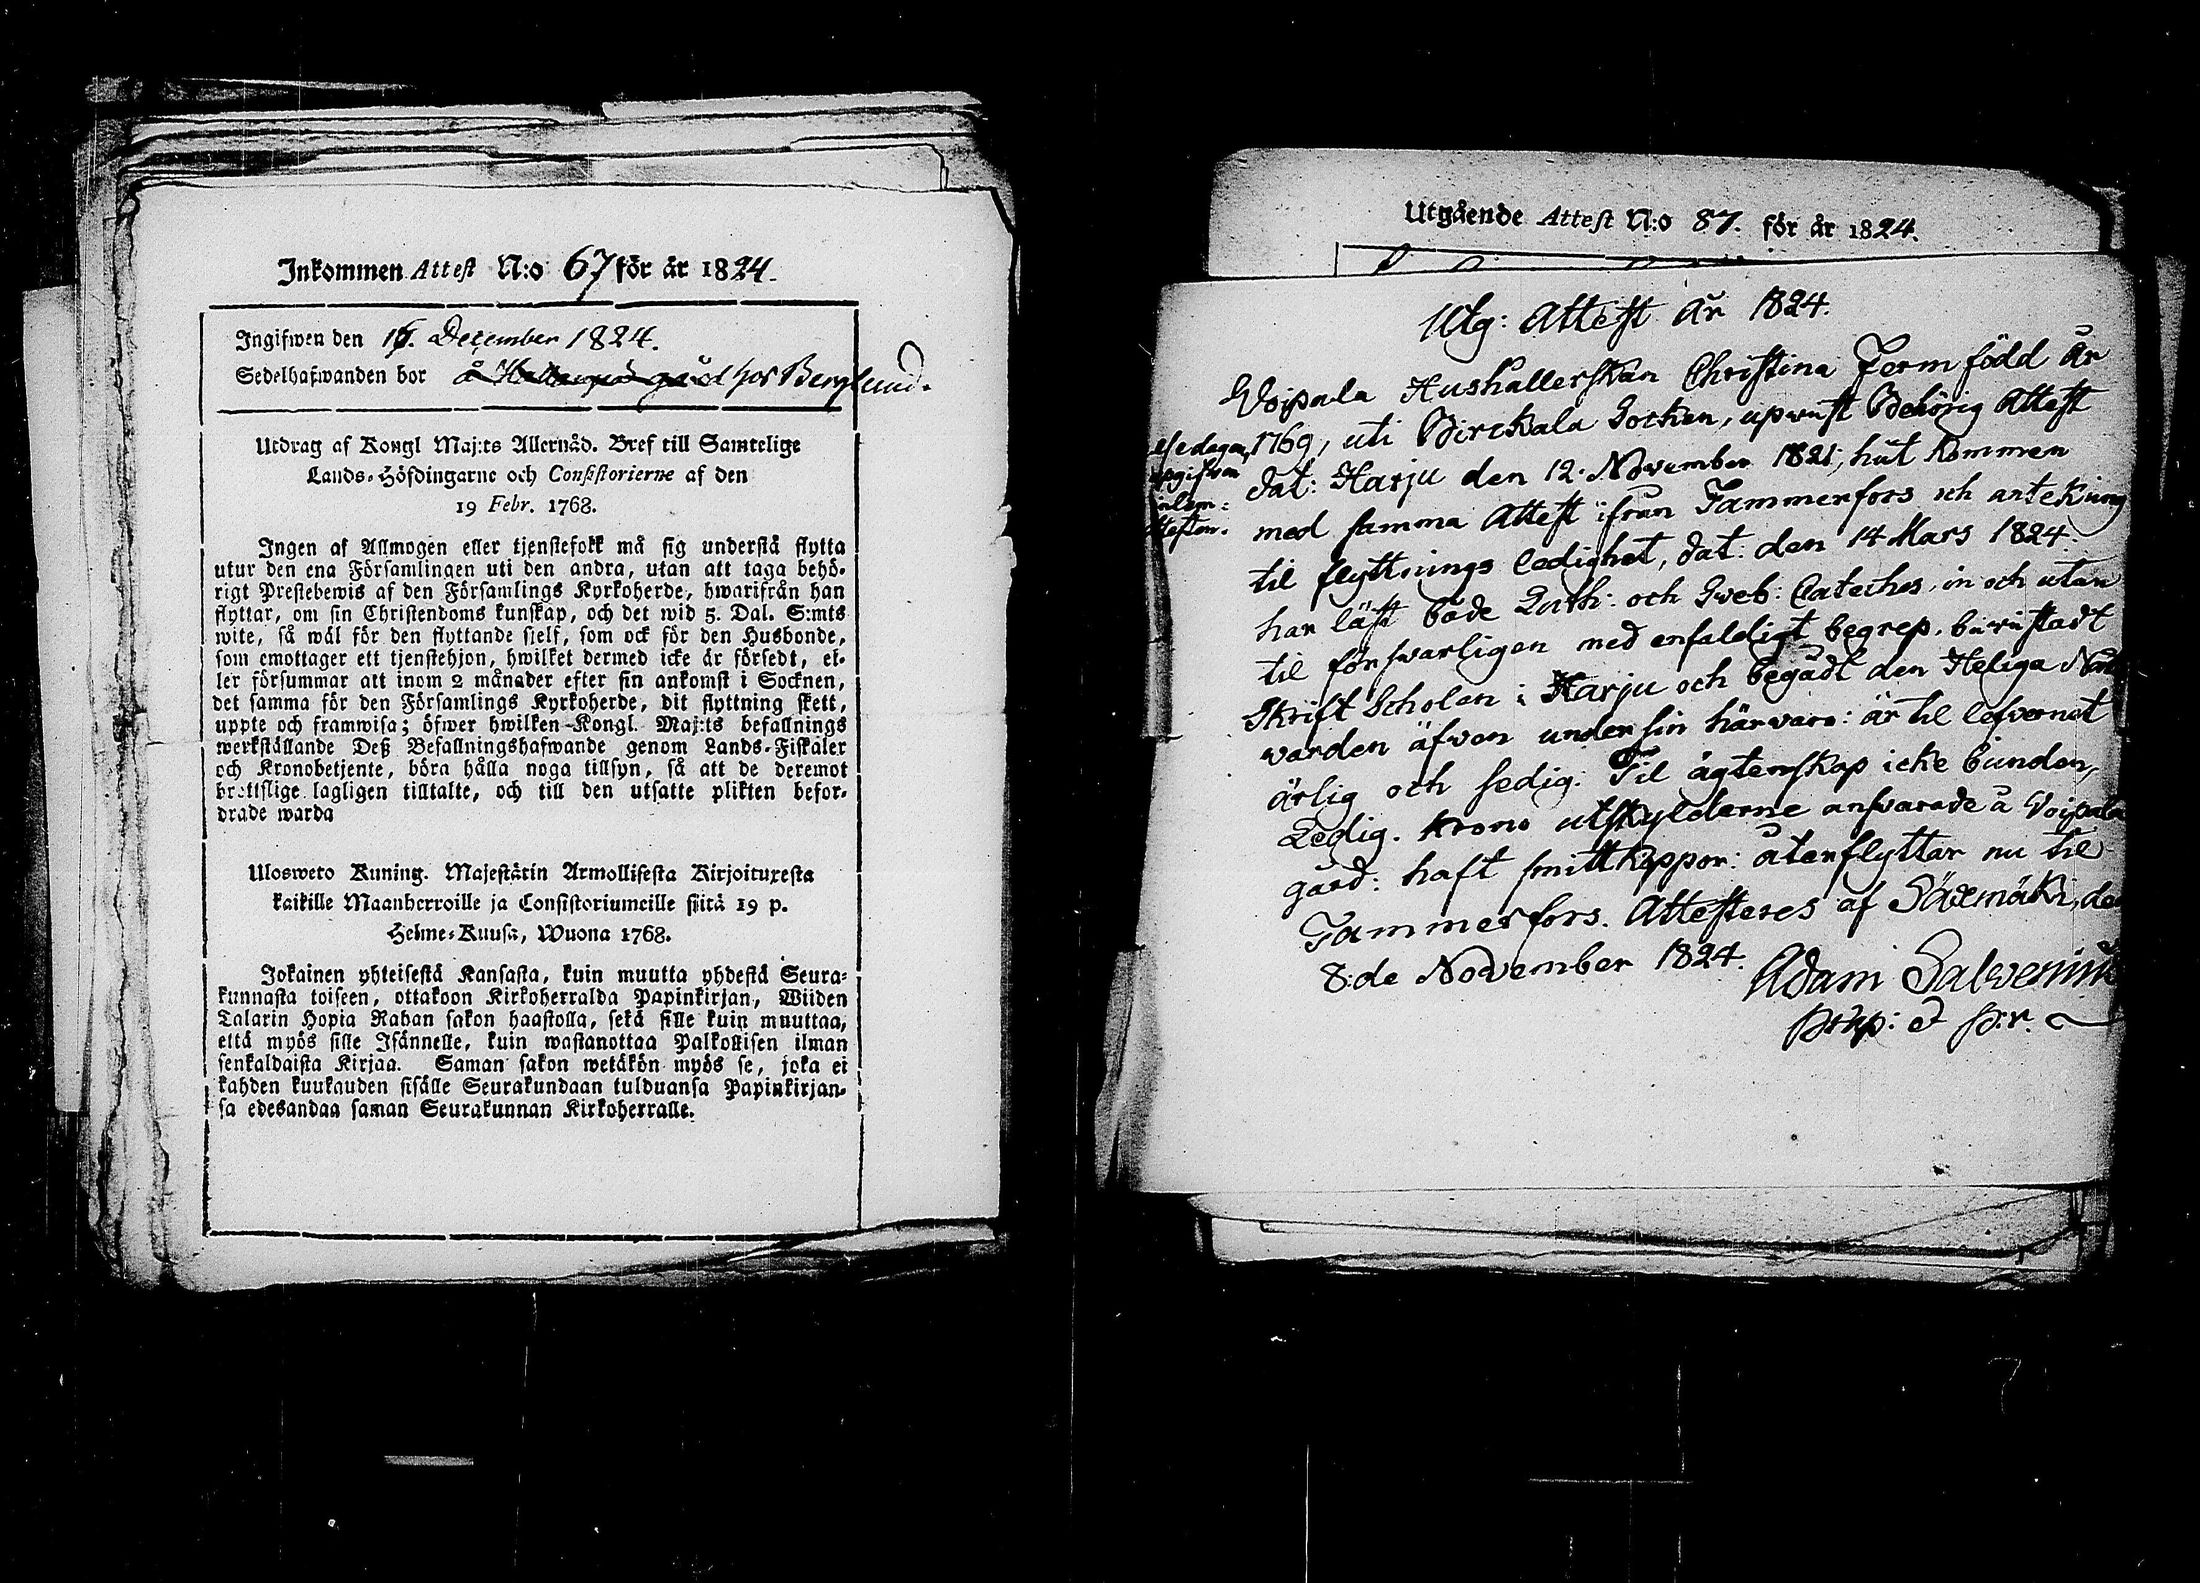 Inkommen Attest N:o 67 för år 1824.
Ingifwen den 16. December 1824.
Sedelhafwanden bor å gård hos Berglund.
Utdrag af Kongl Maj:ts Allernåd. Bref till Samtelige
Lands-Höfdingarne och Consistorierne af den
19 Febr. 1768.
Ingen af Allmogen eller tjenstefolk må sig understå flytta
utur den ena Församlingen uti den andra, utan att taga behö-
rigt Prestebewis af den Församlings Kyrkoherde, hwarifrån han
flyttar, om sin Christendoms kunskap, och det wid 5. Dal. S:mts
wite, så wäl för den flyttande sielf, som ock för den Husbonde,
som emottager ett tjenstehjon, hwilket dermed icke är försedt, el-
ler försummar att inom 2 månader efter sin ankomst i Socknen,
det samma för den Församlings Kyrkoherde, dit flyttning skett,
uppte och framwisa; öfwer hwilken Kongl. Maj:ts befallnings
werkställande Deß Befallningshafwande genom Lands-Fiskaler
och Kronobetjente, böra hålla noga tillsyn, så att de deremot
brottslige lagligen tilltalte, och till den utsatte plikten befor-
drade warda
Uloswето Kuning. Majestätin Armollisesta Kirjoituxesta
kaikille Maanherroille ja Consistoriumeille siitä 19 p.
Helme-Kuusa, Wuona 1768.
Jokainen yhteisestä Kansasta, kuin muutta yhdestä Seura-
kunnasta toiseen, ottakoon Kirkoherralda Papinkirjan, Wiiden
Talarin Hopia Rahan sakon haastolla, sekä sille kuin muuttaa,
että myös sille Isännelle, kuin wastanottaa Palkollisen ilman
senkaldaista Kirjaa. Saman sakon wetäkön myös se, joka ei
kahden kuukauden sisälle Seurakundaan tulduansa Papinkirjan-
sa edesandaa saman Seurakunnan Kirkoherralle.
Utgående Attest N:o 87. för år 1824.
Utg: Attest år 1824.
Woipala Hushallerskan Christina Ferm född år
1769, uti Birckala Socken, upwist Behörig Attest
dat: Harju den 12. November 1821, hit kommen
med samma Attest ifrån Tammerfors och antekning
til flyttnings ledighet, dat: den 14 Mars 1824.
har läst både Luth: och Sveb: Cateches, in och utan
til försvarligen med enfaldigt begrep. bewistadt
Skrift Scholan i Harju och begådt den Heliga
warden äfwen under sin härvaro: är til lefvernet
ärlig och sedig: Til ägtenskap icke bunden,
Ledig. Krono utskylderne answarade å Voipala
gård: haft smittkoppor: återflyttar nu til
Tammerfors. Attesteres af Säxmäki, den
8:de November 1824. Adam Salvenius